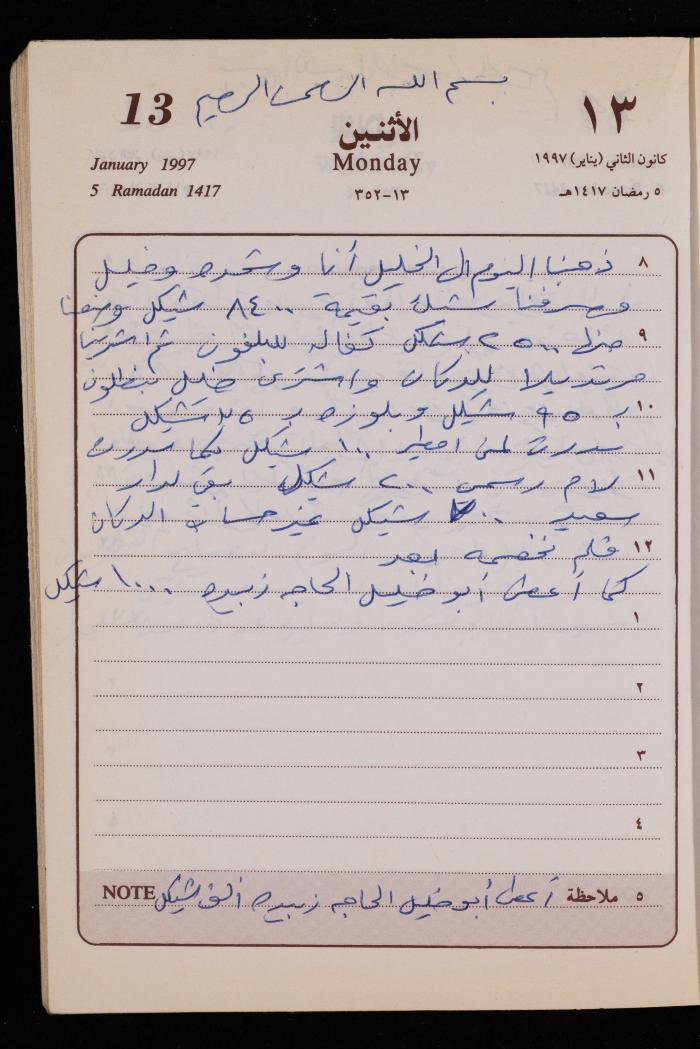 بسم الله الرحمن الرحيم
13
الأثنين
١٣
January 1997
Monday
كانون الثاني (يناير) ١٩٩٧
5 Ramadan 1417
١٣-٣٥٢
٥ رمضان ١٤١٧هـ
٨ ذهبنا اليوم الى الخليل أنا وخليل
وصرفنا شيك بقيمة ٨٤٠٠ شيكل ووضعنا
٩ منها ٢٥٠٠ شيكل كفاله للبلفون ثم اشترينا
للدكان واشترى خليل بنطلون
١٠ ب ٩٥ شيكل وبلوزه ب ٢٥ شيكل
سددت ١٠٠ شيكل كما سددت
١١ لام رسمي ٢٠٠ شيكل بقي لدار
سعيد شيكل غير حساب الدكان
١٢ فلم نخصمه بعد
كما أعطى أبو خليل الحاجه زبيده ١٠٠٠ شيكل
١
٢
٣
٤
٥ ملاحظة أعطى أبو خليل الحاجه زبيده ألف شيكل NOTE